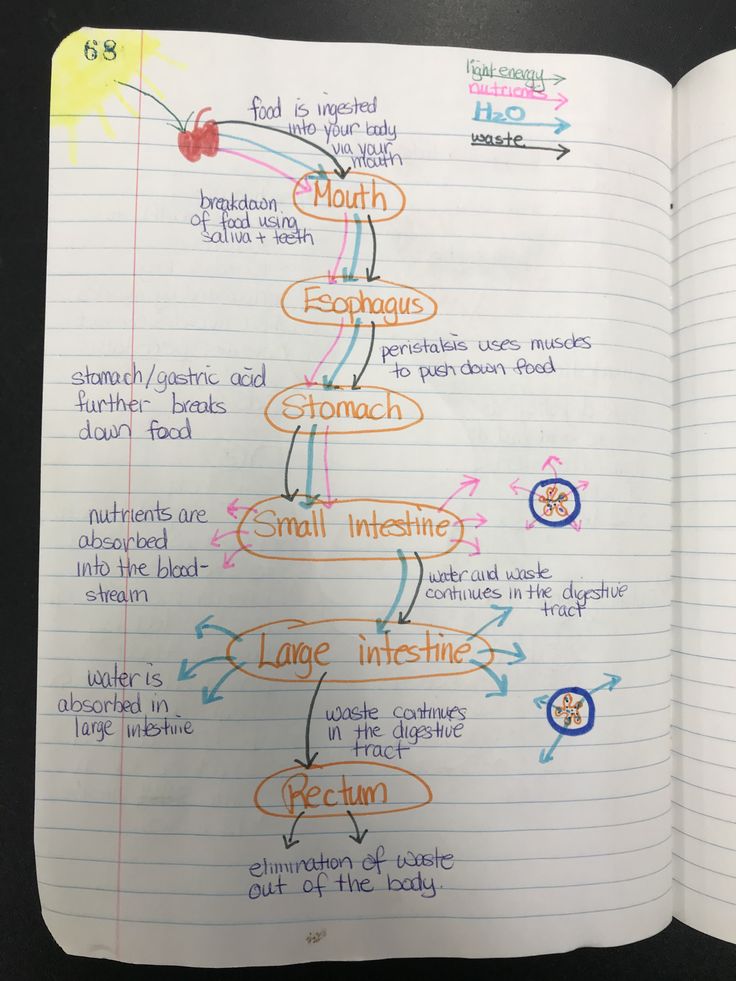 68
light energy
nutrients
H2O
waste
food is ingested
into your body
via your
mouth
Mouth
breakdown
of food using
saliva + teeth
Esophagus
peristalsis uses muscles
to push down food
stomach/gastric acid
further breaks
down food
Stomach
Small intestine
nutrients are
absorbed
into the blood-
stream
water and waste
continues in the digestive
tract
Large intestine
water is
absorbed in
large intestine
waste continues
in the digestive
tract
Rectum
elimination of waste
out of the body.